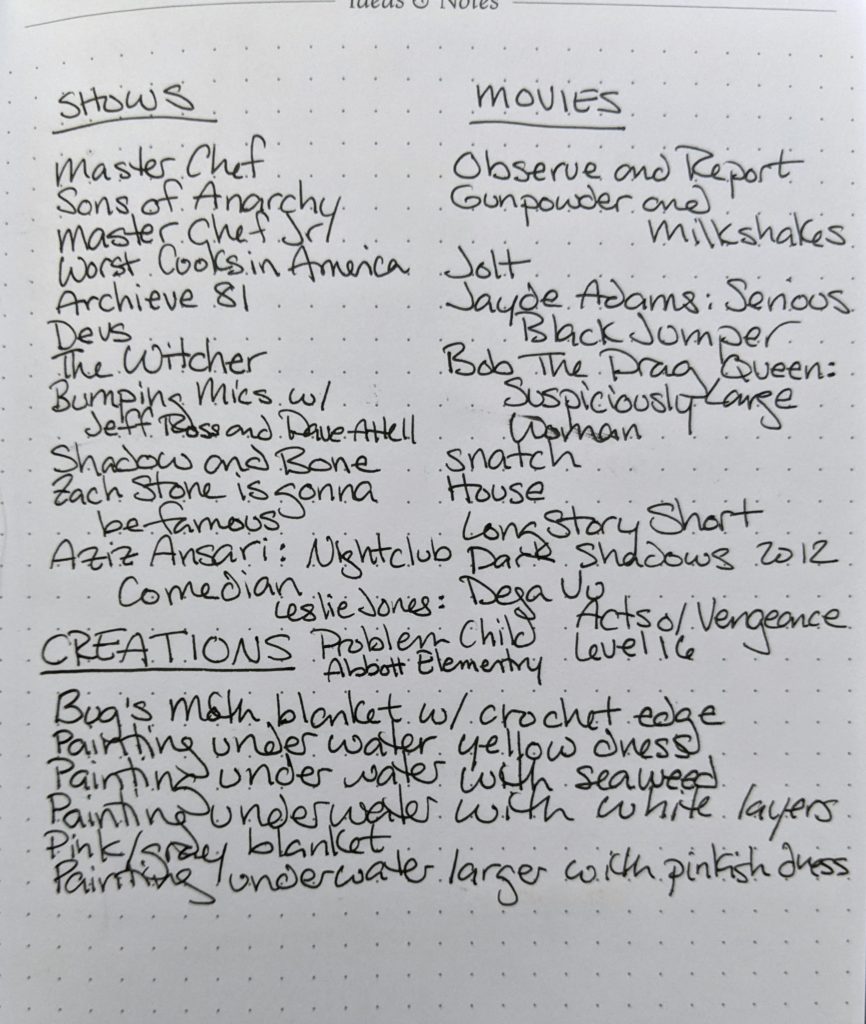 Ideas & Notes
SHOWS
Master Chef
Sons of Anarchy
Master Chef Jr
Worst Cooks in America
Archieve 81
Devs
The Witcher
Bumping Mics w/
Jeff Ross and Dave Attell
Shadow and Bone
Zach Stone is gonna
be famous
Aziz Ansari: Nightclub
Comedian
Leslie Jones:
Problem Child
Abbott Elementry
MOVIES
Observe and Report
Gunpowder and
Milkshakes
Jolt
Jayde Adams: Serious
Black Jumper
Bob The Drag Queen:
Suspiciously Large
Woman
Snatch
House
Long Story Short
Dark Shadows 2012
Deja Vu
Acts of Vengeance
Level 16
CREATIONS
Bug's moth blanket w/ crochet edge
Painting under water yellow dress
Painting under water with seaweed
Painting underwater with white layers
Pink/gray blanket
Painting underwater larger with pinkish dress